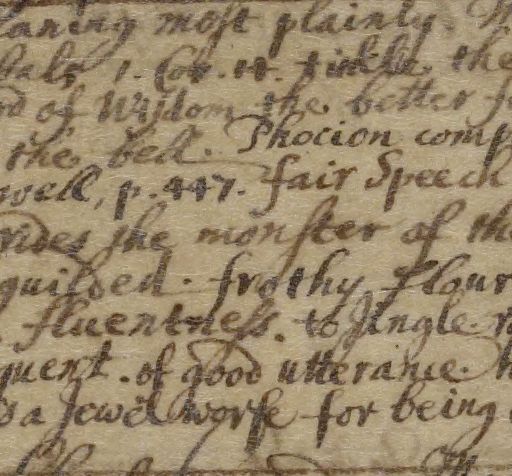 eaning most plainly.
bals 1. Cor. 14. tinkle the
rd of Wisdom the better
the best. Phocion comp
well, p. 447. fair Speech
rides the monster of the
guilded. frothy flour
fluentness. to Jingle.
quent. of good utterance.
s a Jewel worse for being